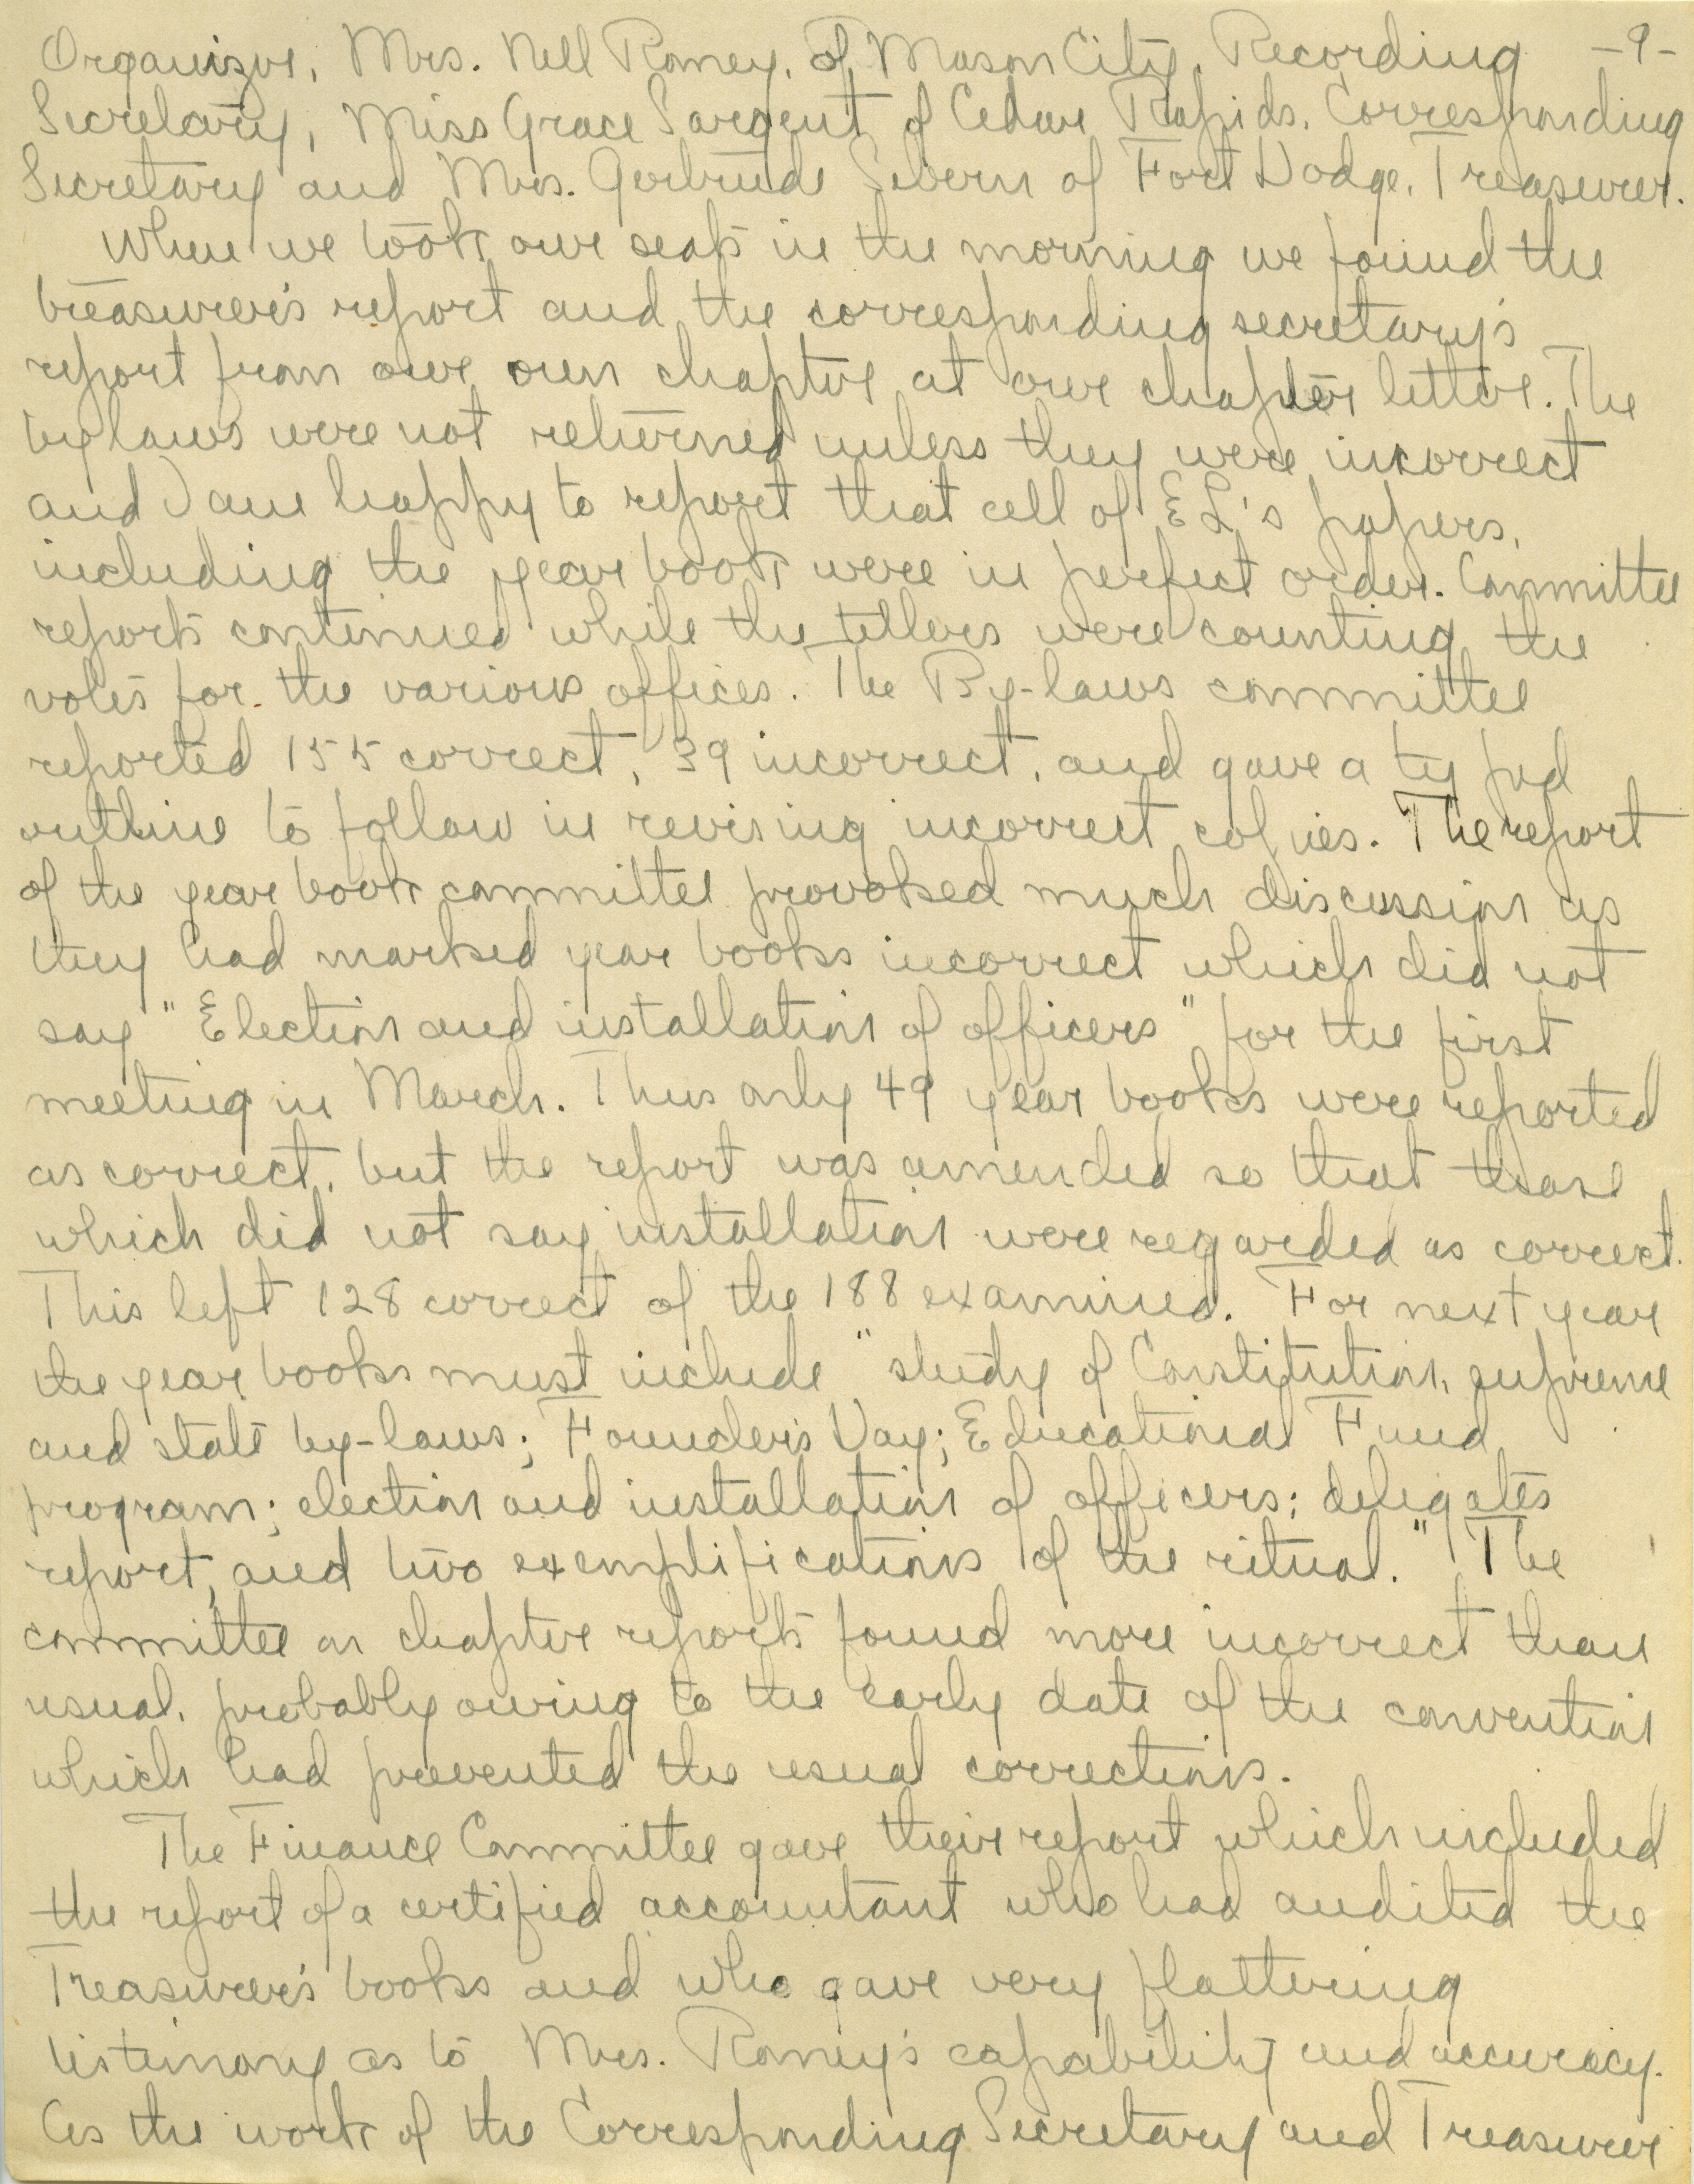 Organizer, Mrs. Nell Romey, of Mason City, Recording -9-
Secretary, Miss Grace Sargent of Cedar Rapids, Corresponding
Secretary and Mrs. Gertrude Sebern of Fort Dodge, Treasurer.
When we took our seats in the morning we found the
treasurer's report and the corresponding secretary's
report from our own chapter at our chapter letter. The
by laws were not returned unless they were incorrect
and I am happy to report that all of EL's papers,
including the year book were in perfect order. Committee
reports continued while the tellers were counting the
votes for the various offices. The By-laws committee
reported 155 correct, 39 incorrect, and gave a typed
outline to follow in revising incorrect copies. The report
of the year book committee provoked much discussion as
they had marked year books incorrect which did not
say "Election and installation of officers" for the first
meeting in March. Thus only 49 year books were reported
as correct, but the report was amended so that those
which did not say installation were regarded as correct.
This left 128 correct of the 188 examined. For next year
the year books must include "study of Constitution, supreme
and state by-laws; Founder's Day; Educational Fund
program; election and installation of officers; delegates
report, and two exemplifications of the ritual." The
committee on chapter reports found more incorrect than
usual, probably owing to the early date of the convention
which had prevented the usual corrections.
The Finance Committee gave their report which included
the report of a certified accountant who had audited the
Treasurer's books and who gave very flattering
testimony as to Mrs. Romey's capability and accuracy.
As the work of the Corresponding Secretary and Treasurer